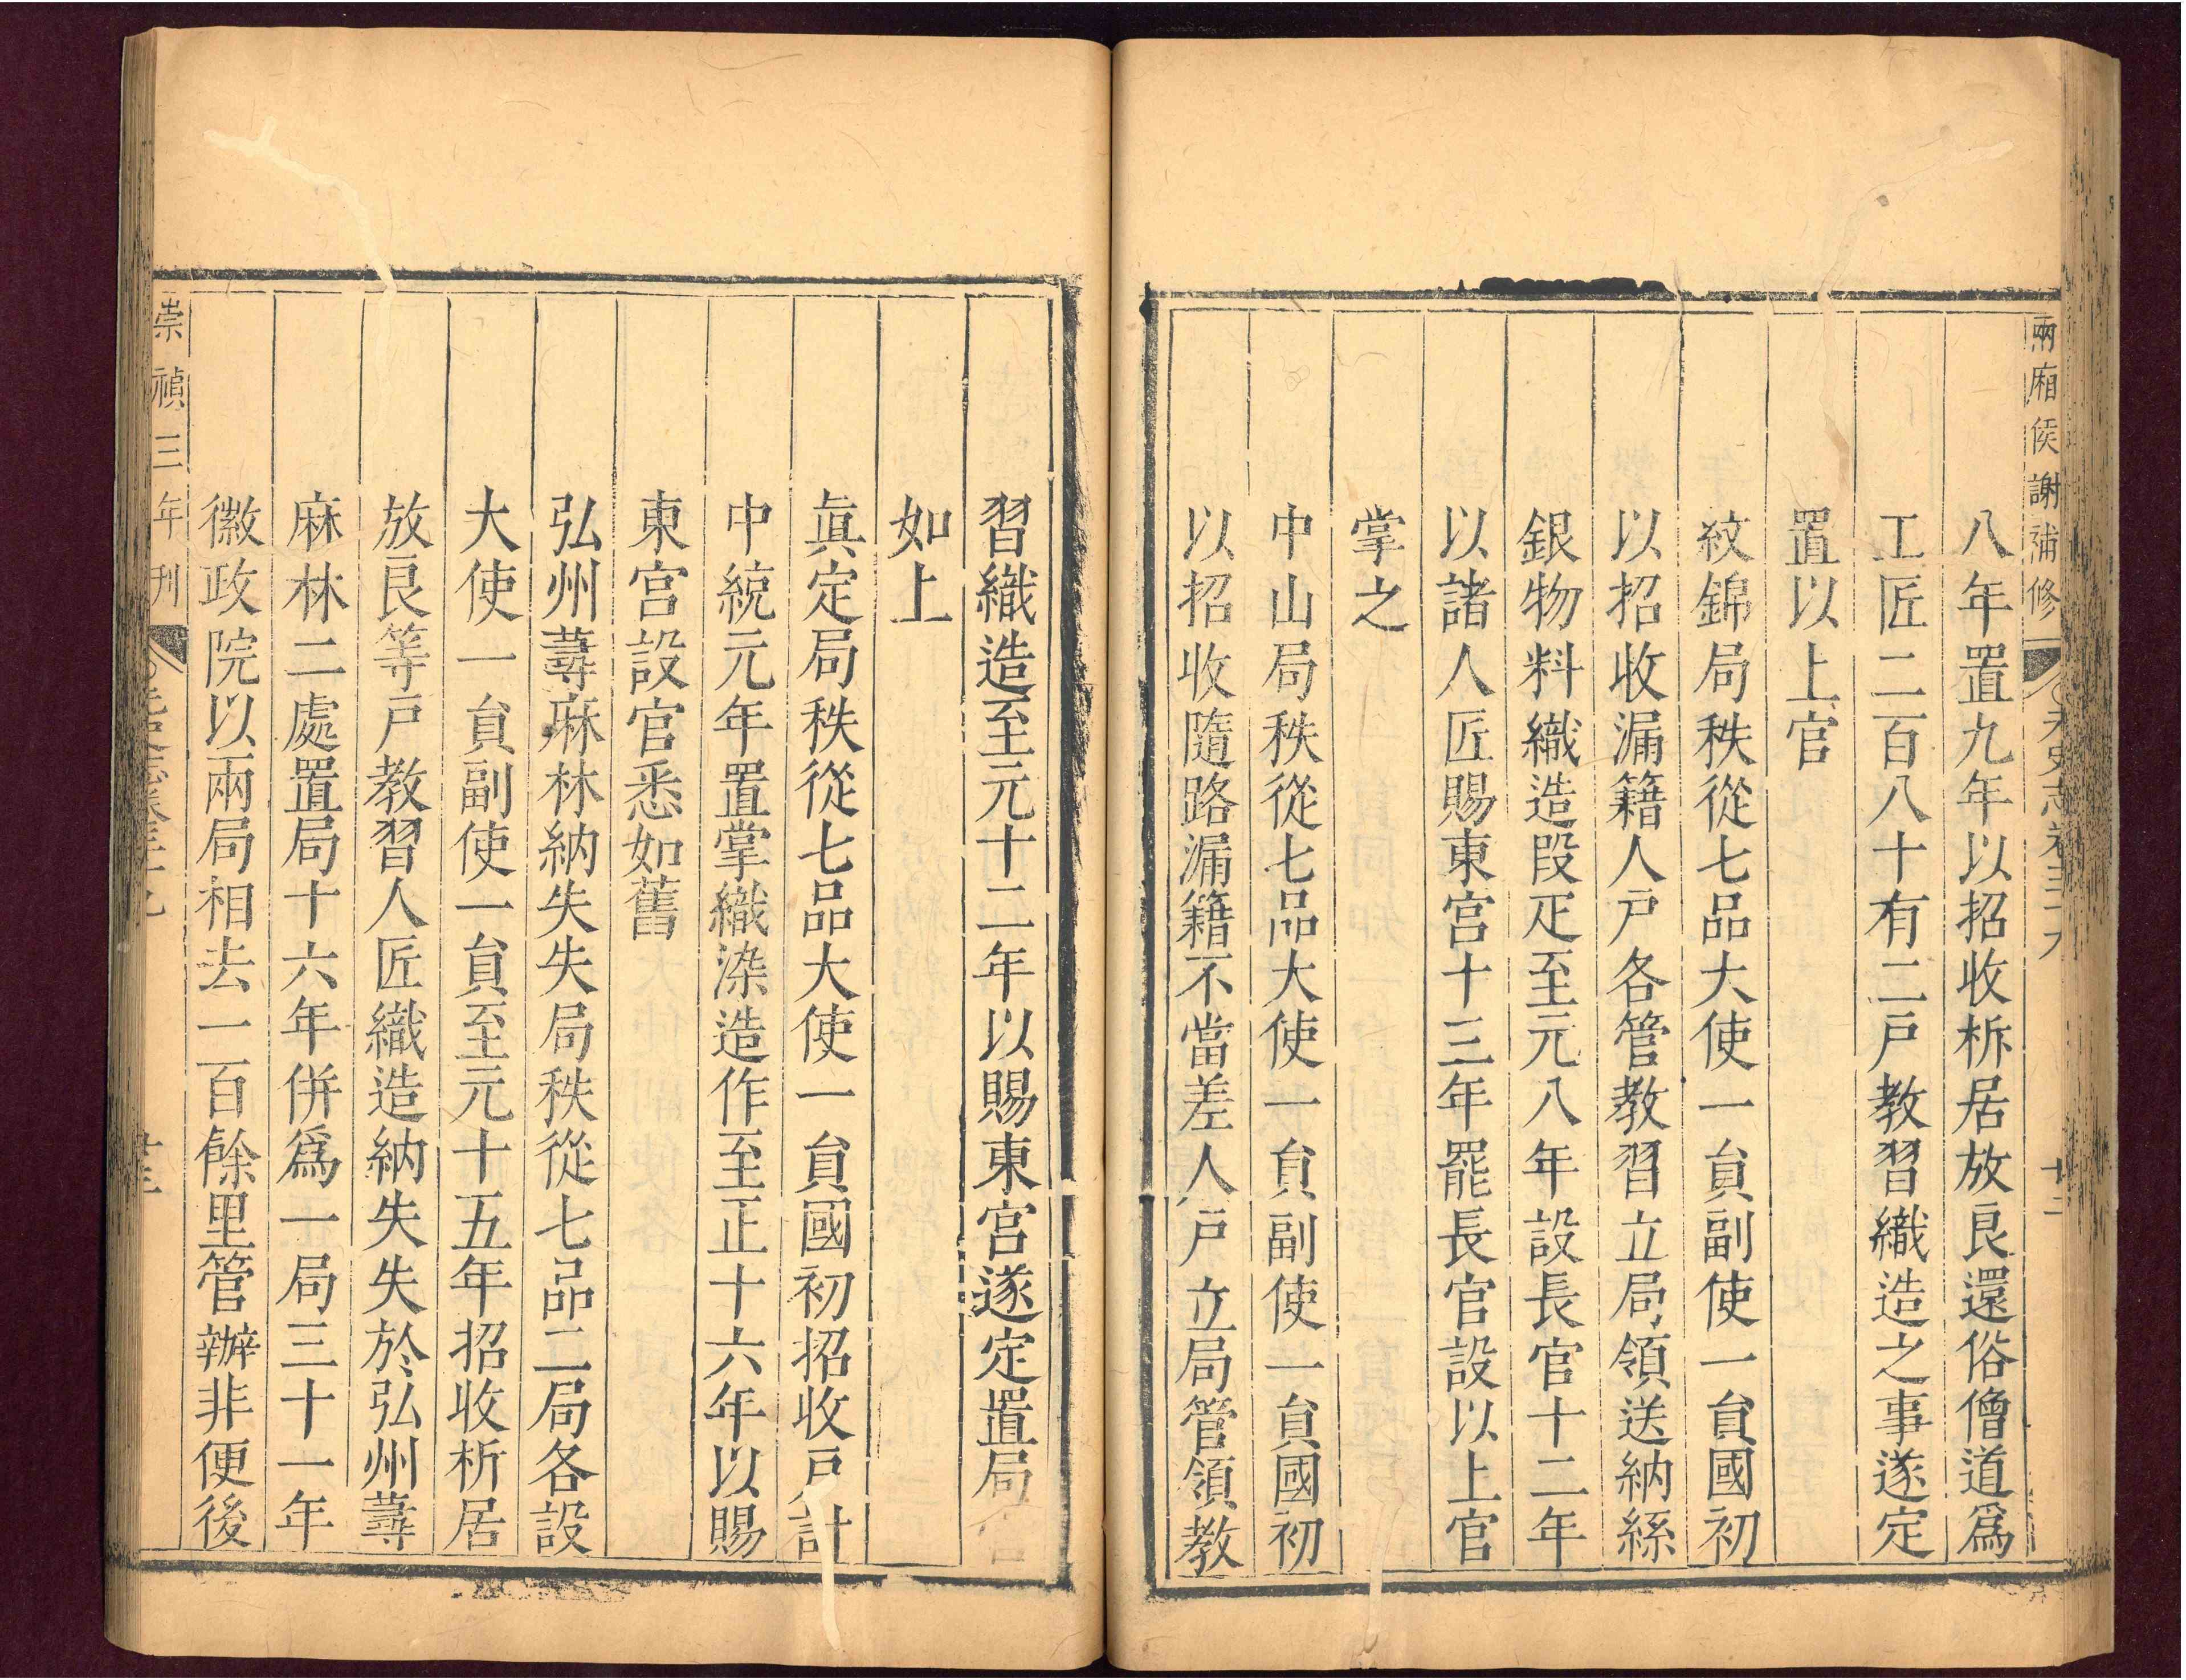 兩廂侯謝補修 元史志卷三十九 廿二
八年置九年以招收析居放良還俗僧道爲
工匠二百八十有二戸教習織造之事遂定
置以上官
紋錦局秩從七品大使一員副使一員國初
以招收漏籍人戸各管教習立局領送納絲
銀物料織造段疋至元八年設長官十二年
以諸人匠賜東宮十三年罷長官設以上官
掌之
中山局秩從七品大使一員副使一員國初
以招收隨路漏籍不當差人戸立局管領教
習織造至元十二年以賜東宮遂定置局
如上
眞定局秩從七品大使一員國初招收戸計
中統元年置掌織染造作至正十六年以賜
東宮設官悉如舊
弘州蕁麻林納失失局秩從七品二局各設
大使一員副使一員至元十五年招收析居
放良等戸教習人匠織造納失失於弘州蕁
麻林二處置局十六年併爲一局三十一年
徽政院以兩局相去一百餘里管辦非便後
崇禎三年刊 元史志卷三十九